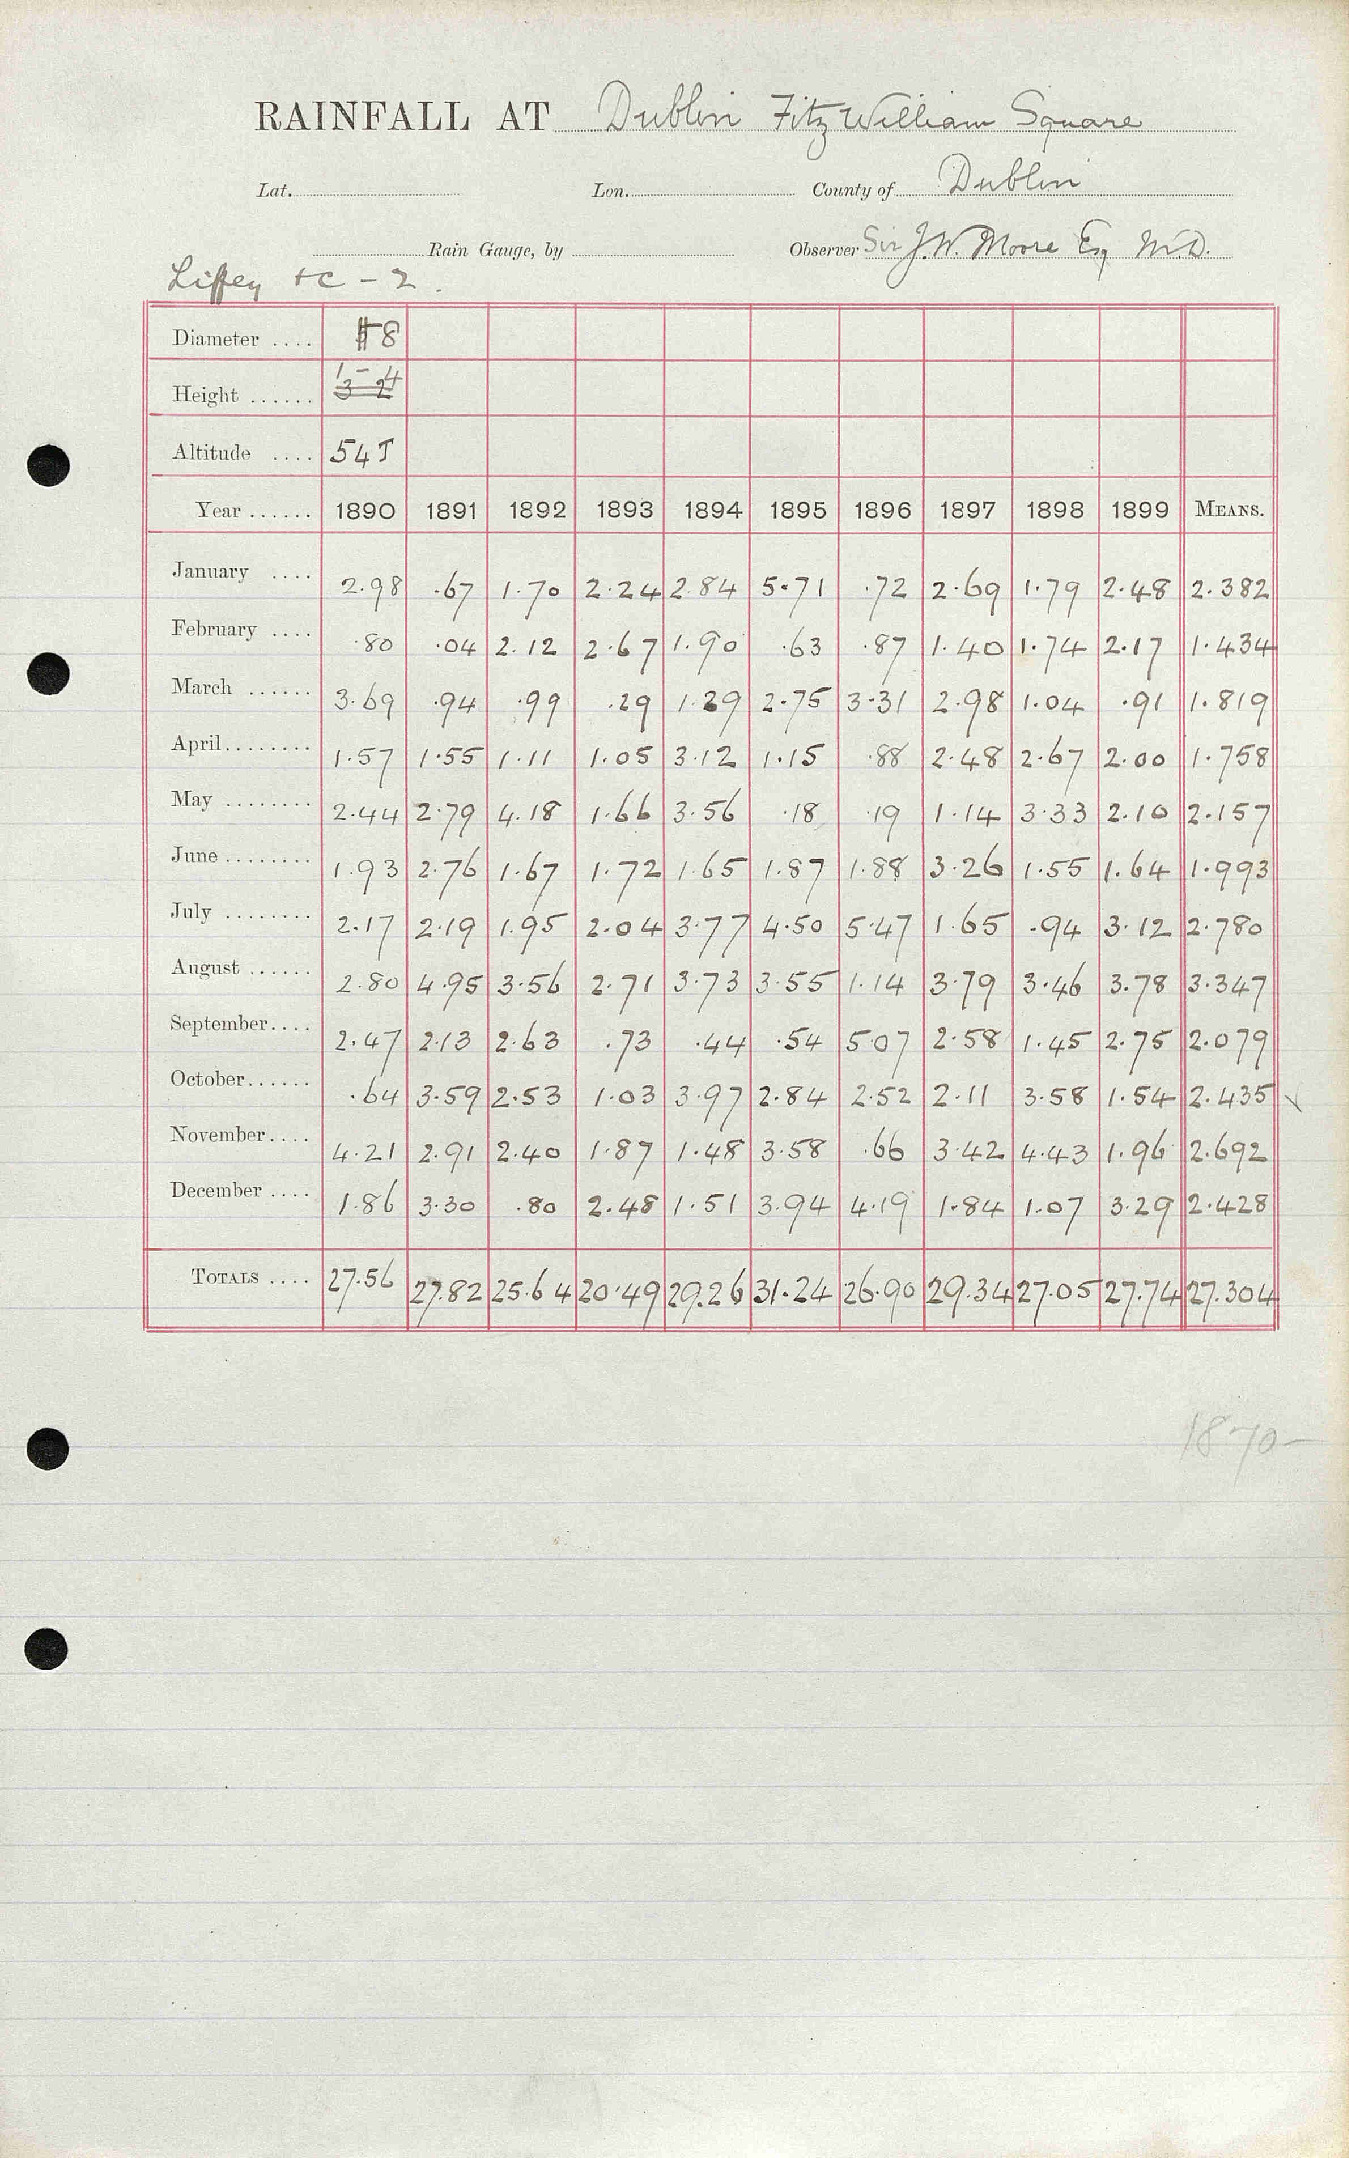 RAINFALL AT Dublin Fitz William Square
Lat. Lon. County of Dublin
Rain Gauge, by Observer Sir J. W. Moore Esq M.D.
Liffey &c - 2.
Diameter .... 8
Height ...... 1 - 4
Altitude .... 54 T
Year ...... 1890 1891 1892 1893 1894 1895 1896 1897 1898 1899 MEANS.
January .... 2.98 .67 1.70 2.24 2.84 5.71 .72 2.69 1.79 2.48 2.382
February .... .80 .04 2.12 2.67 1.90 .63 .87 1.40 1.74 2.17 1.434
March ...... 3.69 .94 .99 .29 1.29 2.75 3.31 2.98 1.04 .91 1.819
April ........ 1.57 1.55 1.11 1.05 3.12 1.15 .88 2.48 2.67 2.00 1.758
May ........ 2.44 2.79 4.18 1.66 3.56 .18 .19 1.14 3.33 2.10 2.157
June ........ 1.93 2.76 1.67 1.72 1.65 1.87 1.88 3.26 1.55 1.64 1.993
July ........ 2.17 2.19 1.95 2.04 3.77 4.50 5.47 1.65 .94 3.12 2.780
August ...... 2.80 4.95 3.56 2.71 3.73 3.55 1.14 3.79 3.46 3.78 3.347
September .... 2.47 2.13 2.63 .73 .44 .54 5.07 2.58 1.45 2.75 2.079
October ...... .64 3.59 2.53 1.03 3.97 2.84 2.52 2.11 3.58 1.54 2.435
November .... 4.21 2.91 2.40 1.87 1.48 3.58 .66 3.42 4.43 1.96 2.692
December .... 1.86 3.30 .80 2.48 1.51 3.94 4.19 1.84 1.07 3.29 2.428
TOTALS .... 27.56 27.82 25.64 20.49 29.26 31.24 26.90 29.34 27.05 27.74 27.304
1870-